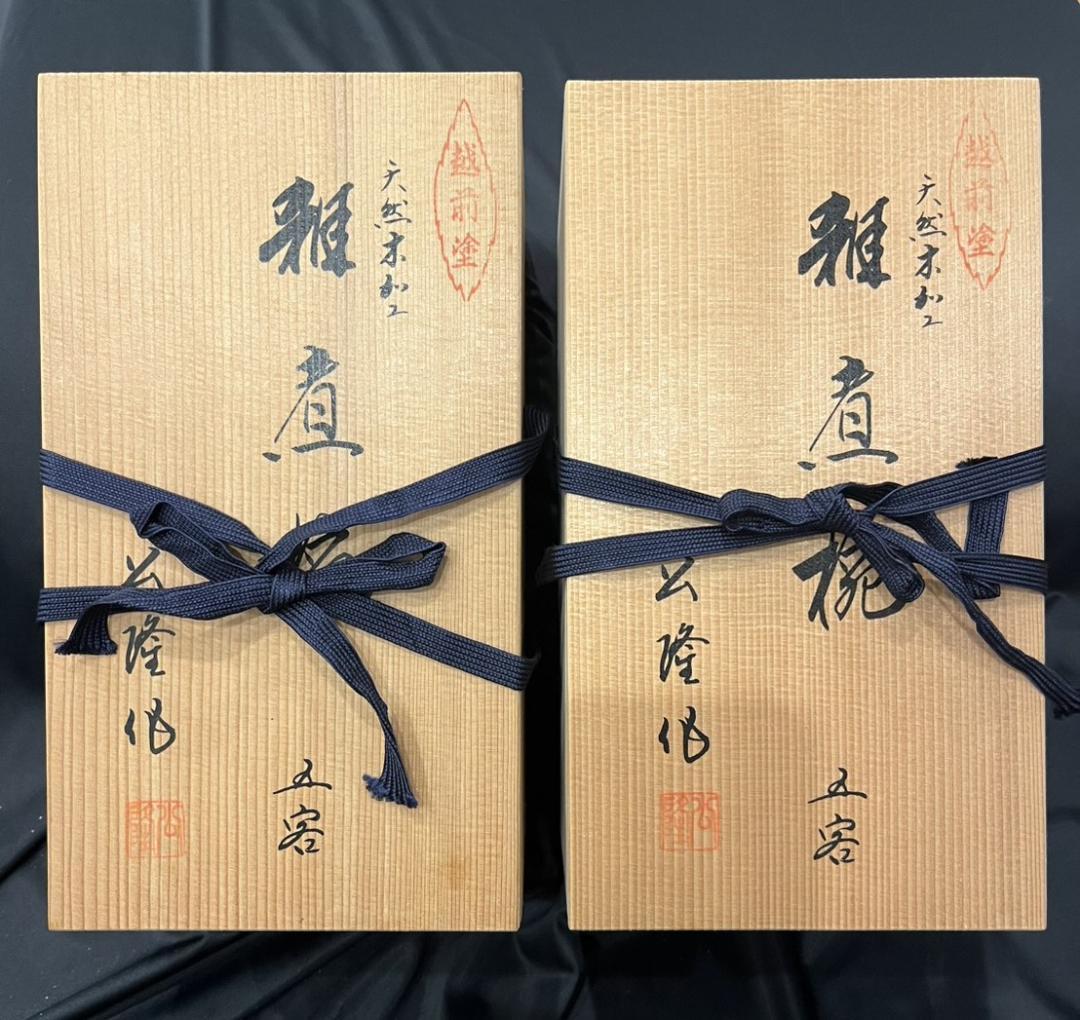 越前塗
天然木加工
雑煮椀
五客
公隆作
公隆
越前塗
天然木加工
雑煮椀
五客
公隆作
公隆